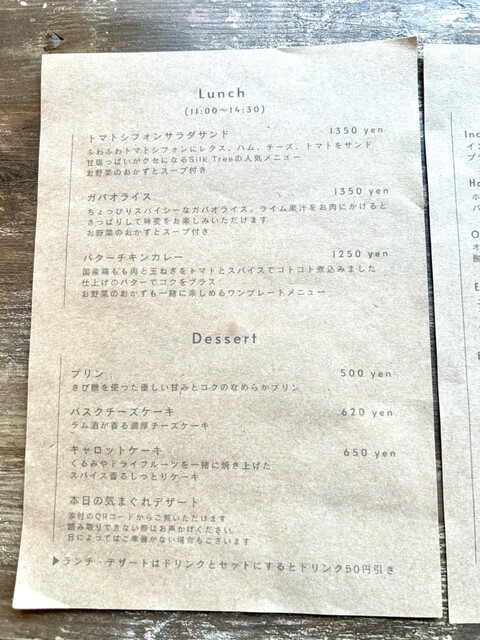 Lunch
(11:00〜14:30)
トマトシフォンサラダサンド 1350 yen
ふわふわトマトシフォンにレタス、ハム、チーズ、トマトをサンド
甘塩っぱいがクセになるSilk Treeの人気メニュー
お野菜のおかずとスープ付き
ガパオライス 1350 yen
ちょっぴりスパイシーなガパオライス。ライム果汁をお肉にかけると
さっぱりして味変をお楽しみいただけます
お野菜のおかずとスープ付き
バターチキンカレー 1250 yen
国産鶏もも肉と玉ねぎをトマトとスパイスでコトコト煮込みました
仕上げのバターでコクをプラス
お野菜のおかずも一緒に楽しめるワンプレートメニュー
Dessert
プリン 500 yen
きび糖を使った優しい甘みとコクのなめらかプリン
バスクチーズケーキ 620 yen
ラム酒が香る濃厚チーズケーキ
キャロットケーキ 650 yen
くるみやドライフルーツを一緒に焼き上げた
スパイス香るしっとりケーキ
本日の気まぐれデザート
添付のQRコードからご覧いただけます
読み取りできない際はお声かけください
日によってはご準備がない場合もございます
▶ランチ・デザートはドリンクとセットにするとドリンク50円引き